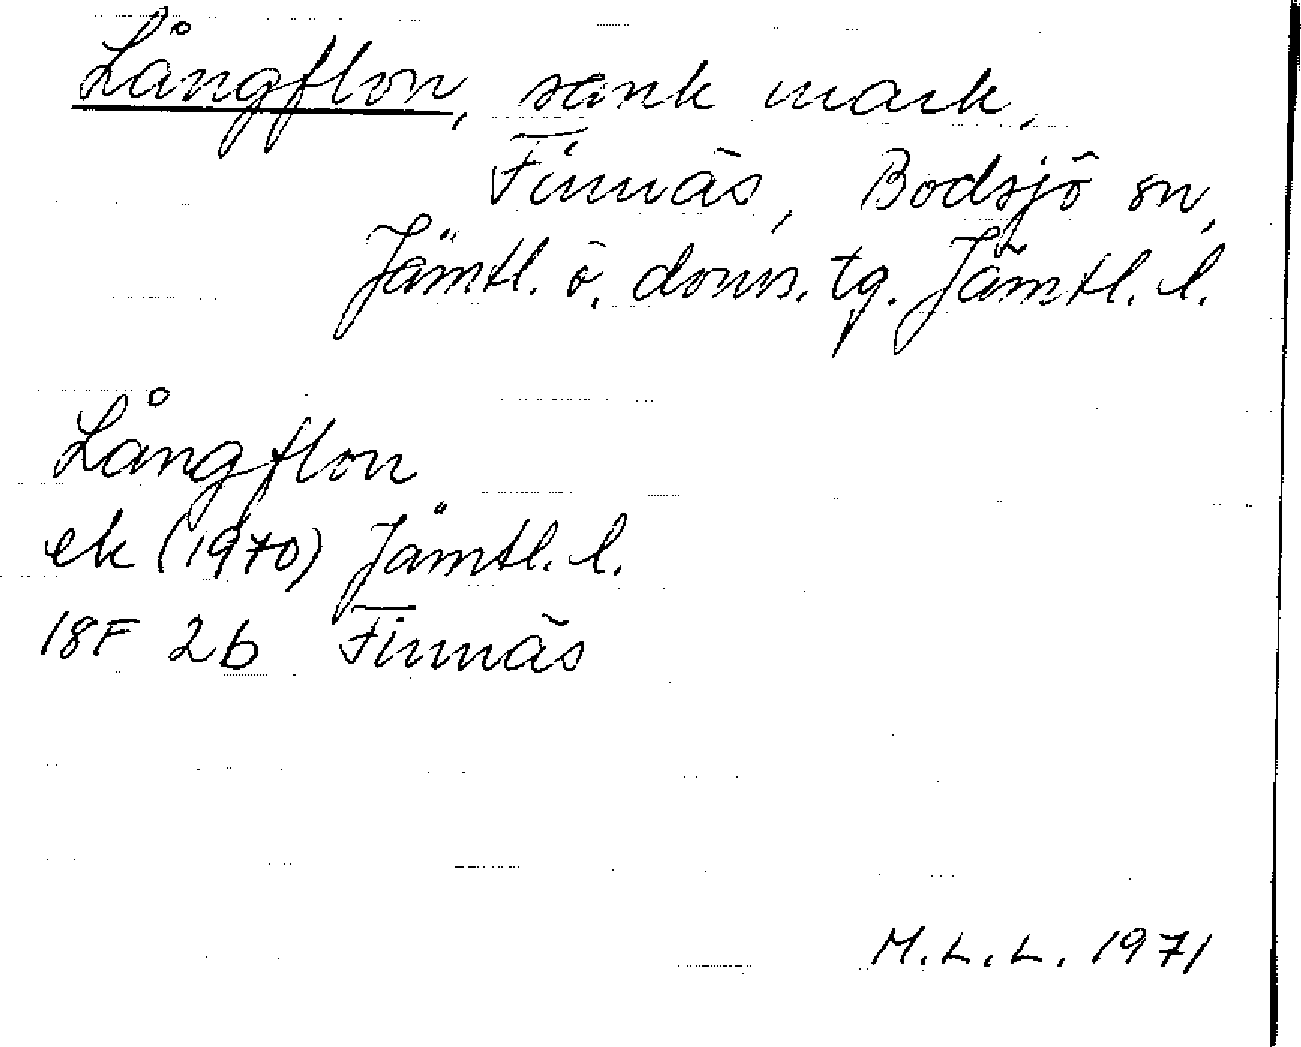 Långflon, sank mark,
Finnäs, Bodsjö sn,
Jämtl. ö. doms. tg. Jämtl. l.
Långflon
ek (1970) Jämtl. l.
18F 2b Finnäs
M.L.L. 1971